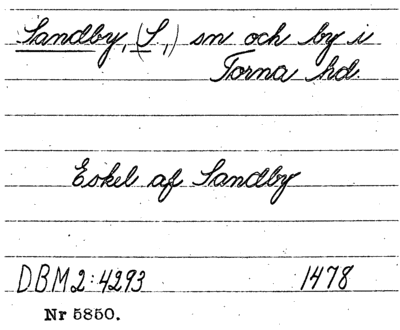 Sandby, (S,) sn och by i
Torna hd.
Eskel af Sandby
DBM 2:4293 1478
Nr 5850.